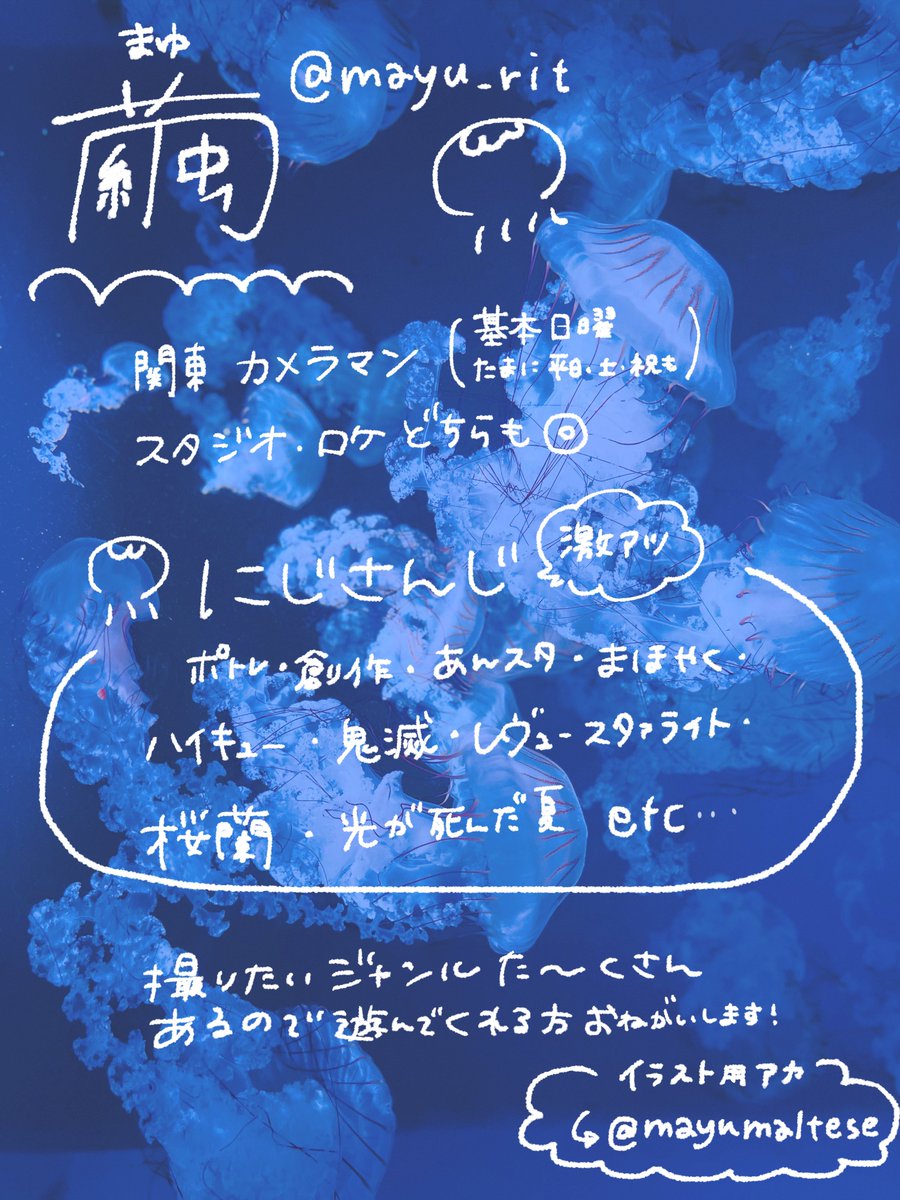 まゆ
繭 @mayu_rit
関東 カメラマン (基本日曜
たまに平日・土・祝も)
スタジオ・ロケ どちらも◎
にじさんじ 激アツ
ポトレ・創作・あんスタ・まほやく・
ハイキュー・鬼滅・レヴュースタァライト・
桜蘭・光が死んだ夏 etc…
撮りたいジャンル た〜くさん
あるので遊んでくれる方おねがいします!
イラスト用アカ
↳@mayumaltese